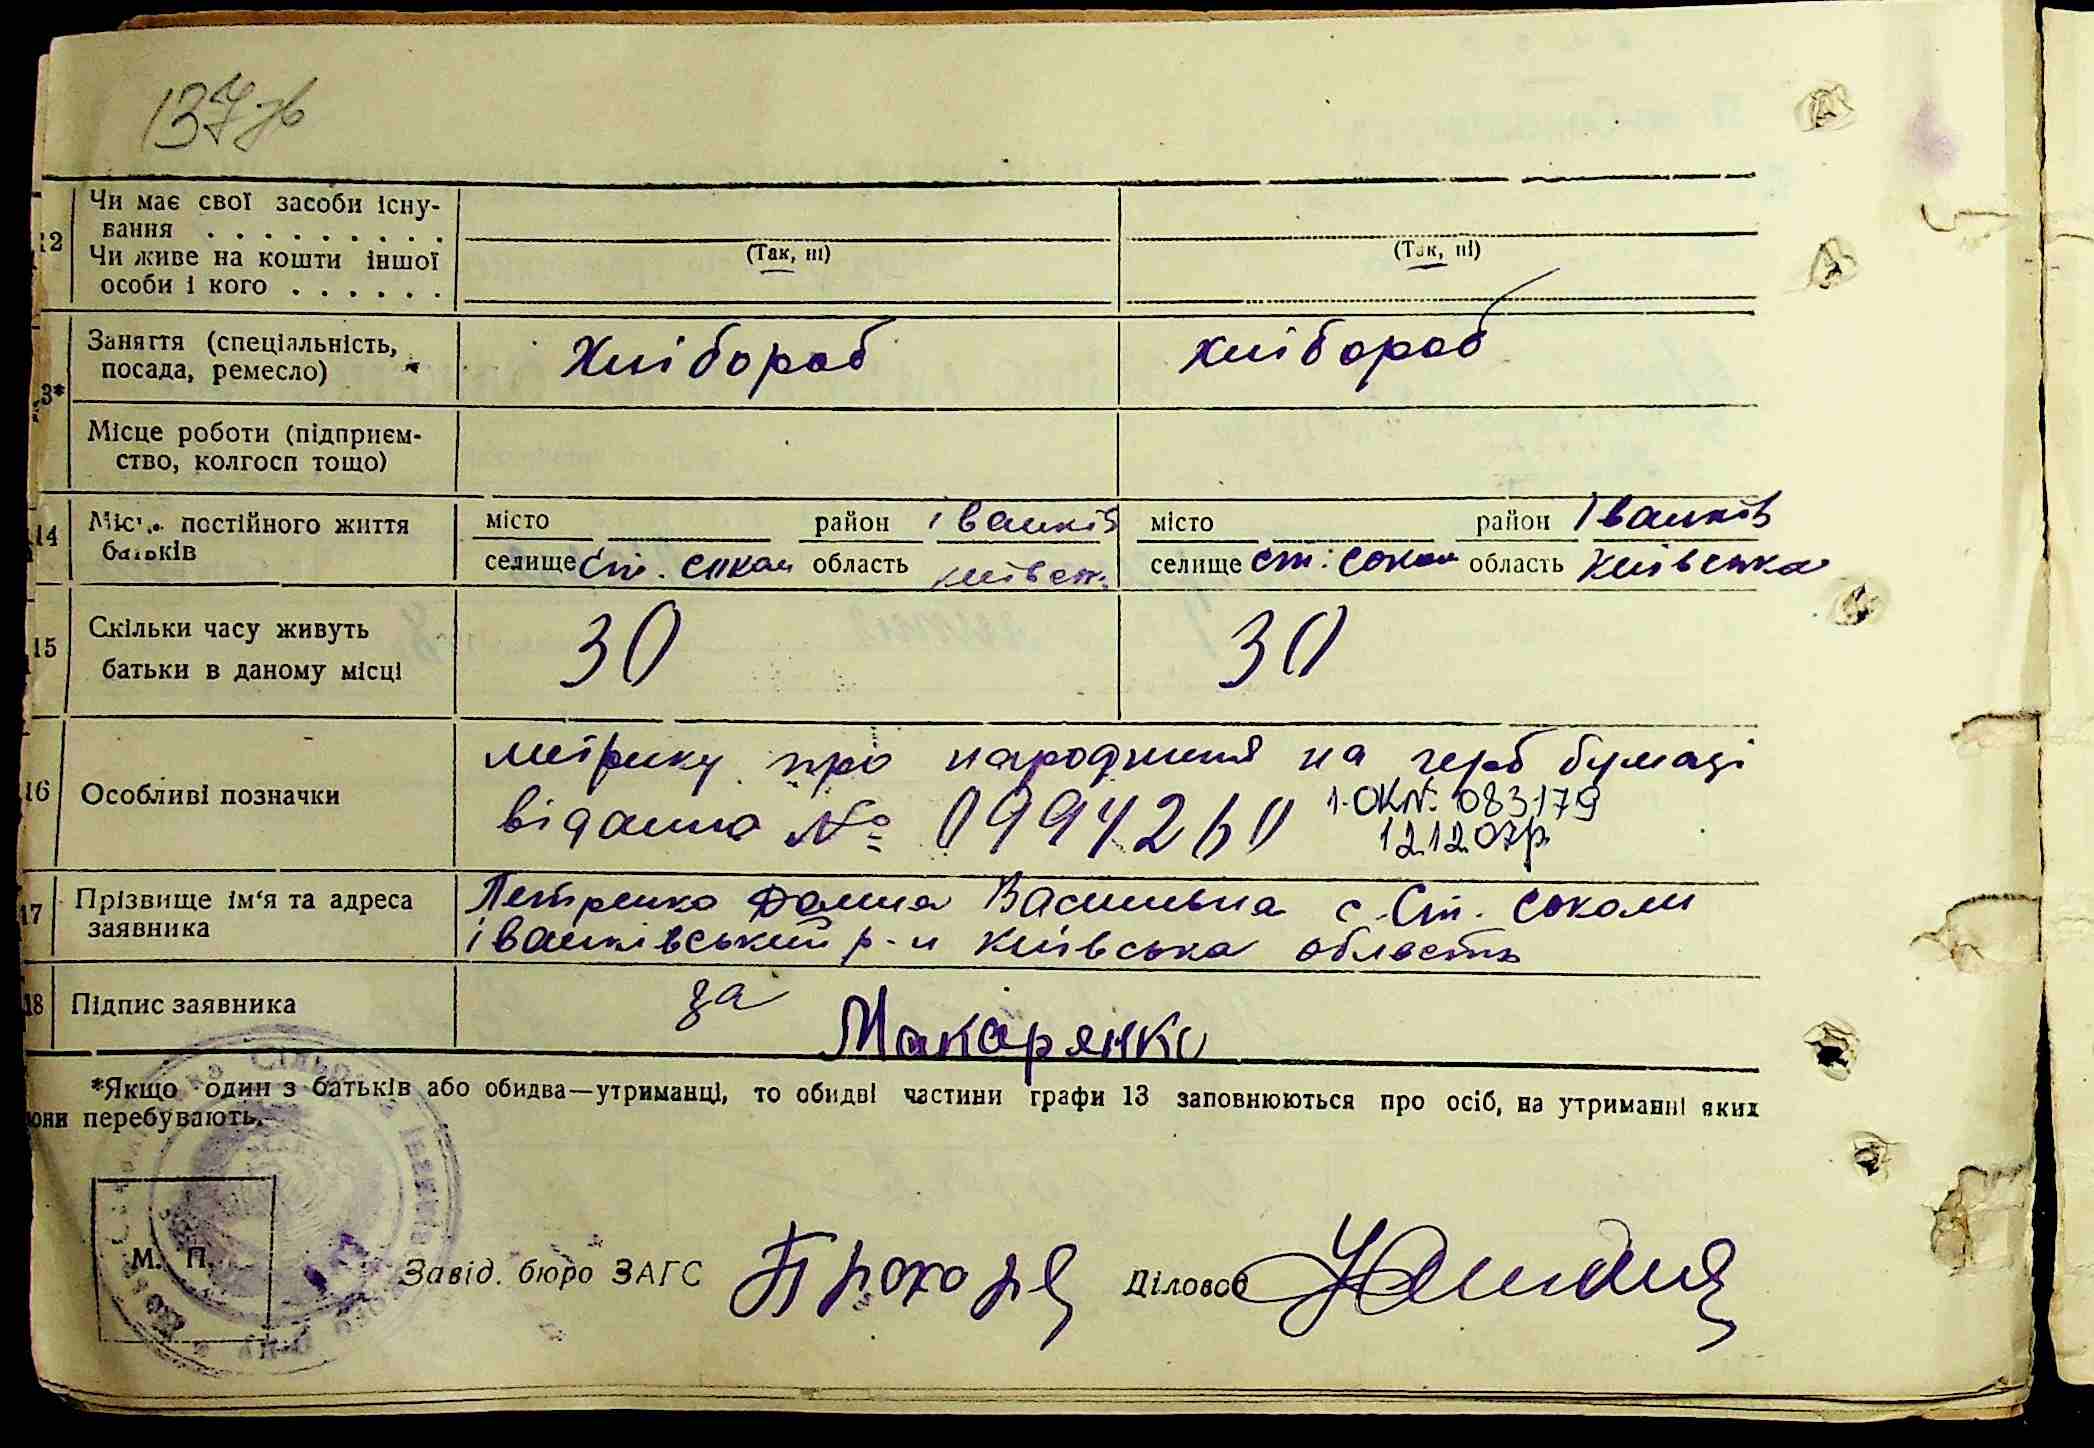 137 зв
12 Чи має свої засоби існу-
вання . . . . . . . . .
(Так, ні) (Так, ні)
Чи живе на кошти іншої
особи і кого . . . . . .
3* Заняття (спеціальність, посада, ремесло) Хлібороб хлібороб
Місце роботи (підприєм-
ство, колгосп тощо)
14 постійного життя батьків місто район Іванків місто район Іванків
селище Ст. Сокол область київськ. селище Ст. Сокол область Київська
15 Скільки часу живуть 30 30
батьки в даному місці
16 Особливі позначки
метрику про народження на герб бумазі
відана № 0994260 1-ОК№ 083179
12.12.07р.
17 Прізвище ім'я та адреса заявника
Петренко Василівна с. Ст. Соколи
іванківський р-н Київська область
18 Підпис заявника за Макарянко
*Якщо один з батьків або обидва—утриманці, то обидві частини графи 13 заповнюються про осіб, на утриманні яких
вони перебувають.
М. П.
Завід. бюро ЗАГС Діловод